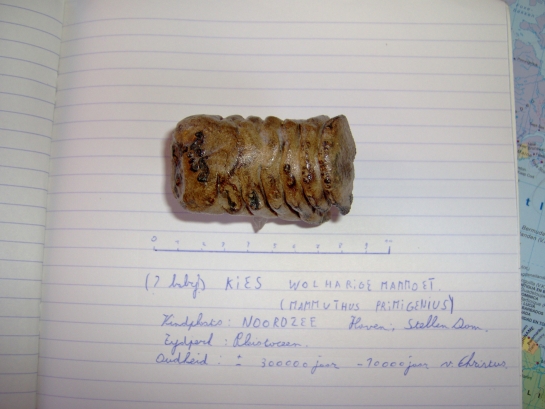 (? baby) KIES WOLHARIDE MAMMOET.
(MAMMUTHUS PRIMIGENIUS)
Vindplaats: NOORDZEE Haven, Stellen Dam.
Tijdperk: Pleistoceen.
Oudheid: ± 300000 jaar - 10000 jaar v. Christus